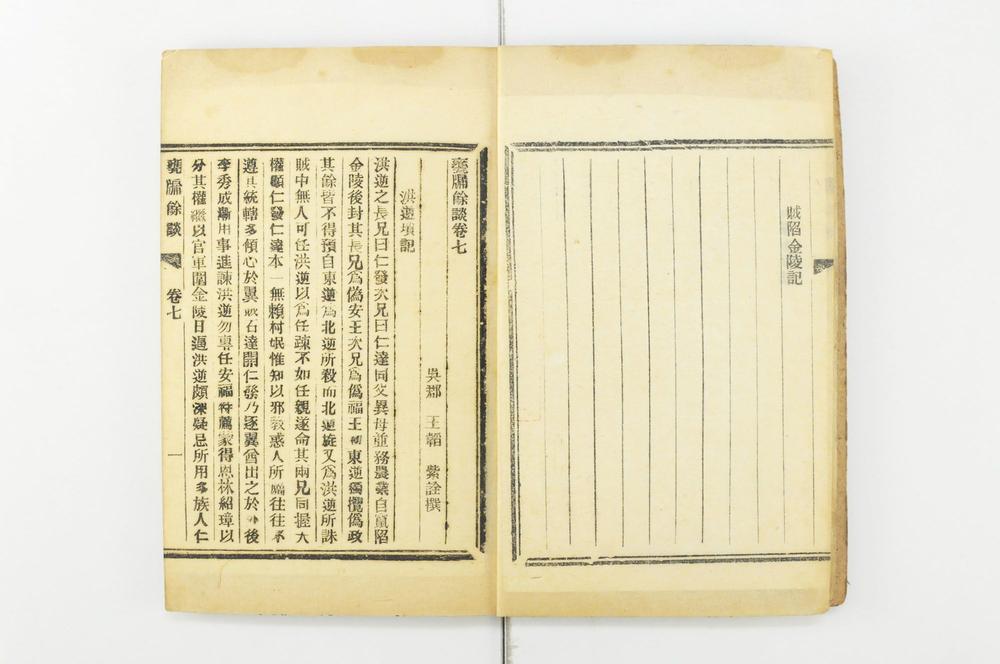 賊陷金陵記
甕牖餘談卷七
吳郡 王韜 紫詮撰
洪逆瑣記
洪逆之長兄曰仁發次兄曰仁達同父異母並務農業自竄陷
金陵後封其長兄爲僞安王次兄爲僞福王時東逆獨攬僞政
其餘皆不得預自東逆爲北逆所殺而北逆旋又爲洪逆所誅
賊中無人可任洪逆以爲任疎不如任親遂命其兩兄同握大
權顧仁發仁達本一無賴村氓惟知以邪教惑人所屬往往不
遵其統轄多傾心於翼賊石達開仁發乃逐翼酋出之於外後
李秀成漸用事進諫洪逆勿專任安福待薦蒙得恩林紹璋以
分其權繼以官軍圍金陵日逼洪逆頗深疑忌所用多族人仁
甕牖餘談
卷七
一